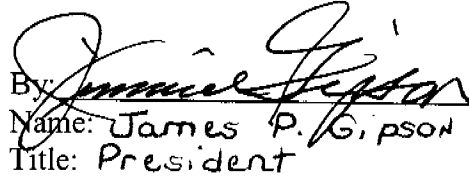 By: Gipson
Name: James P. Gipson
Title: President